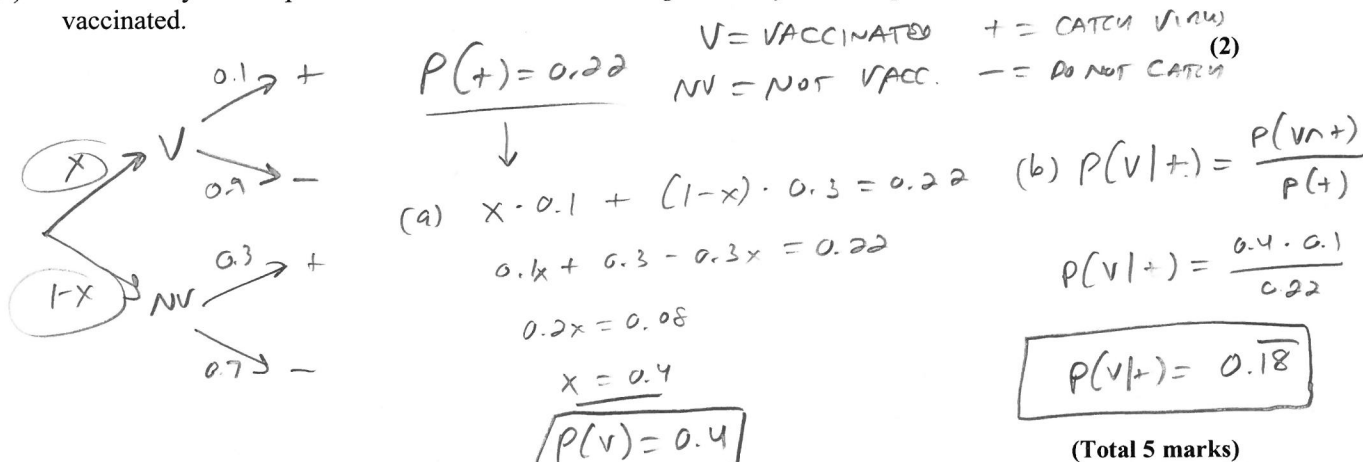 vaccinated.
V = VACCINATED + = CATCH VIRUS
(2)
NV = NOT VACC. - = DO NOT CATCH
P(+) = 0.22
0.1 +
x V
0.9 -
0.3 +
1-x NV
0.7 -
(a) x · 0.1 + (1-x) · 0.3 = 0.22
0.1x + 0.3 - 0.3x = 0.22
0.2x = 0.08
x = 0.4
P(V) = 0.4
(b) P(V|+) = P(V∩+) / P(+)
P(V|+) = 0.4 · 0.1 / 0.22
P(V|+) = 0.1̅8̅
(Total 5 marks)